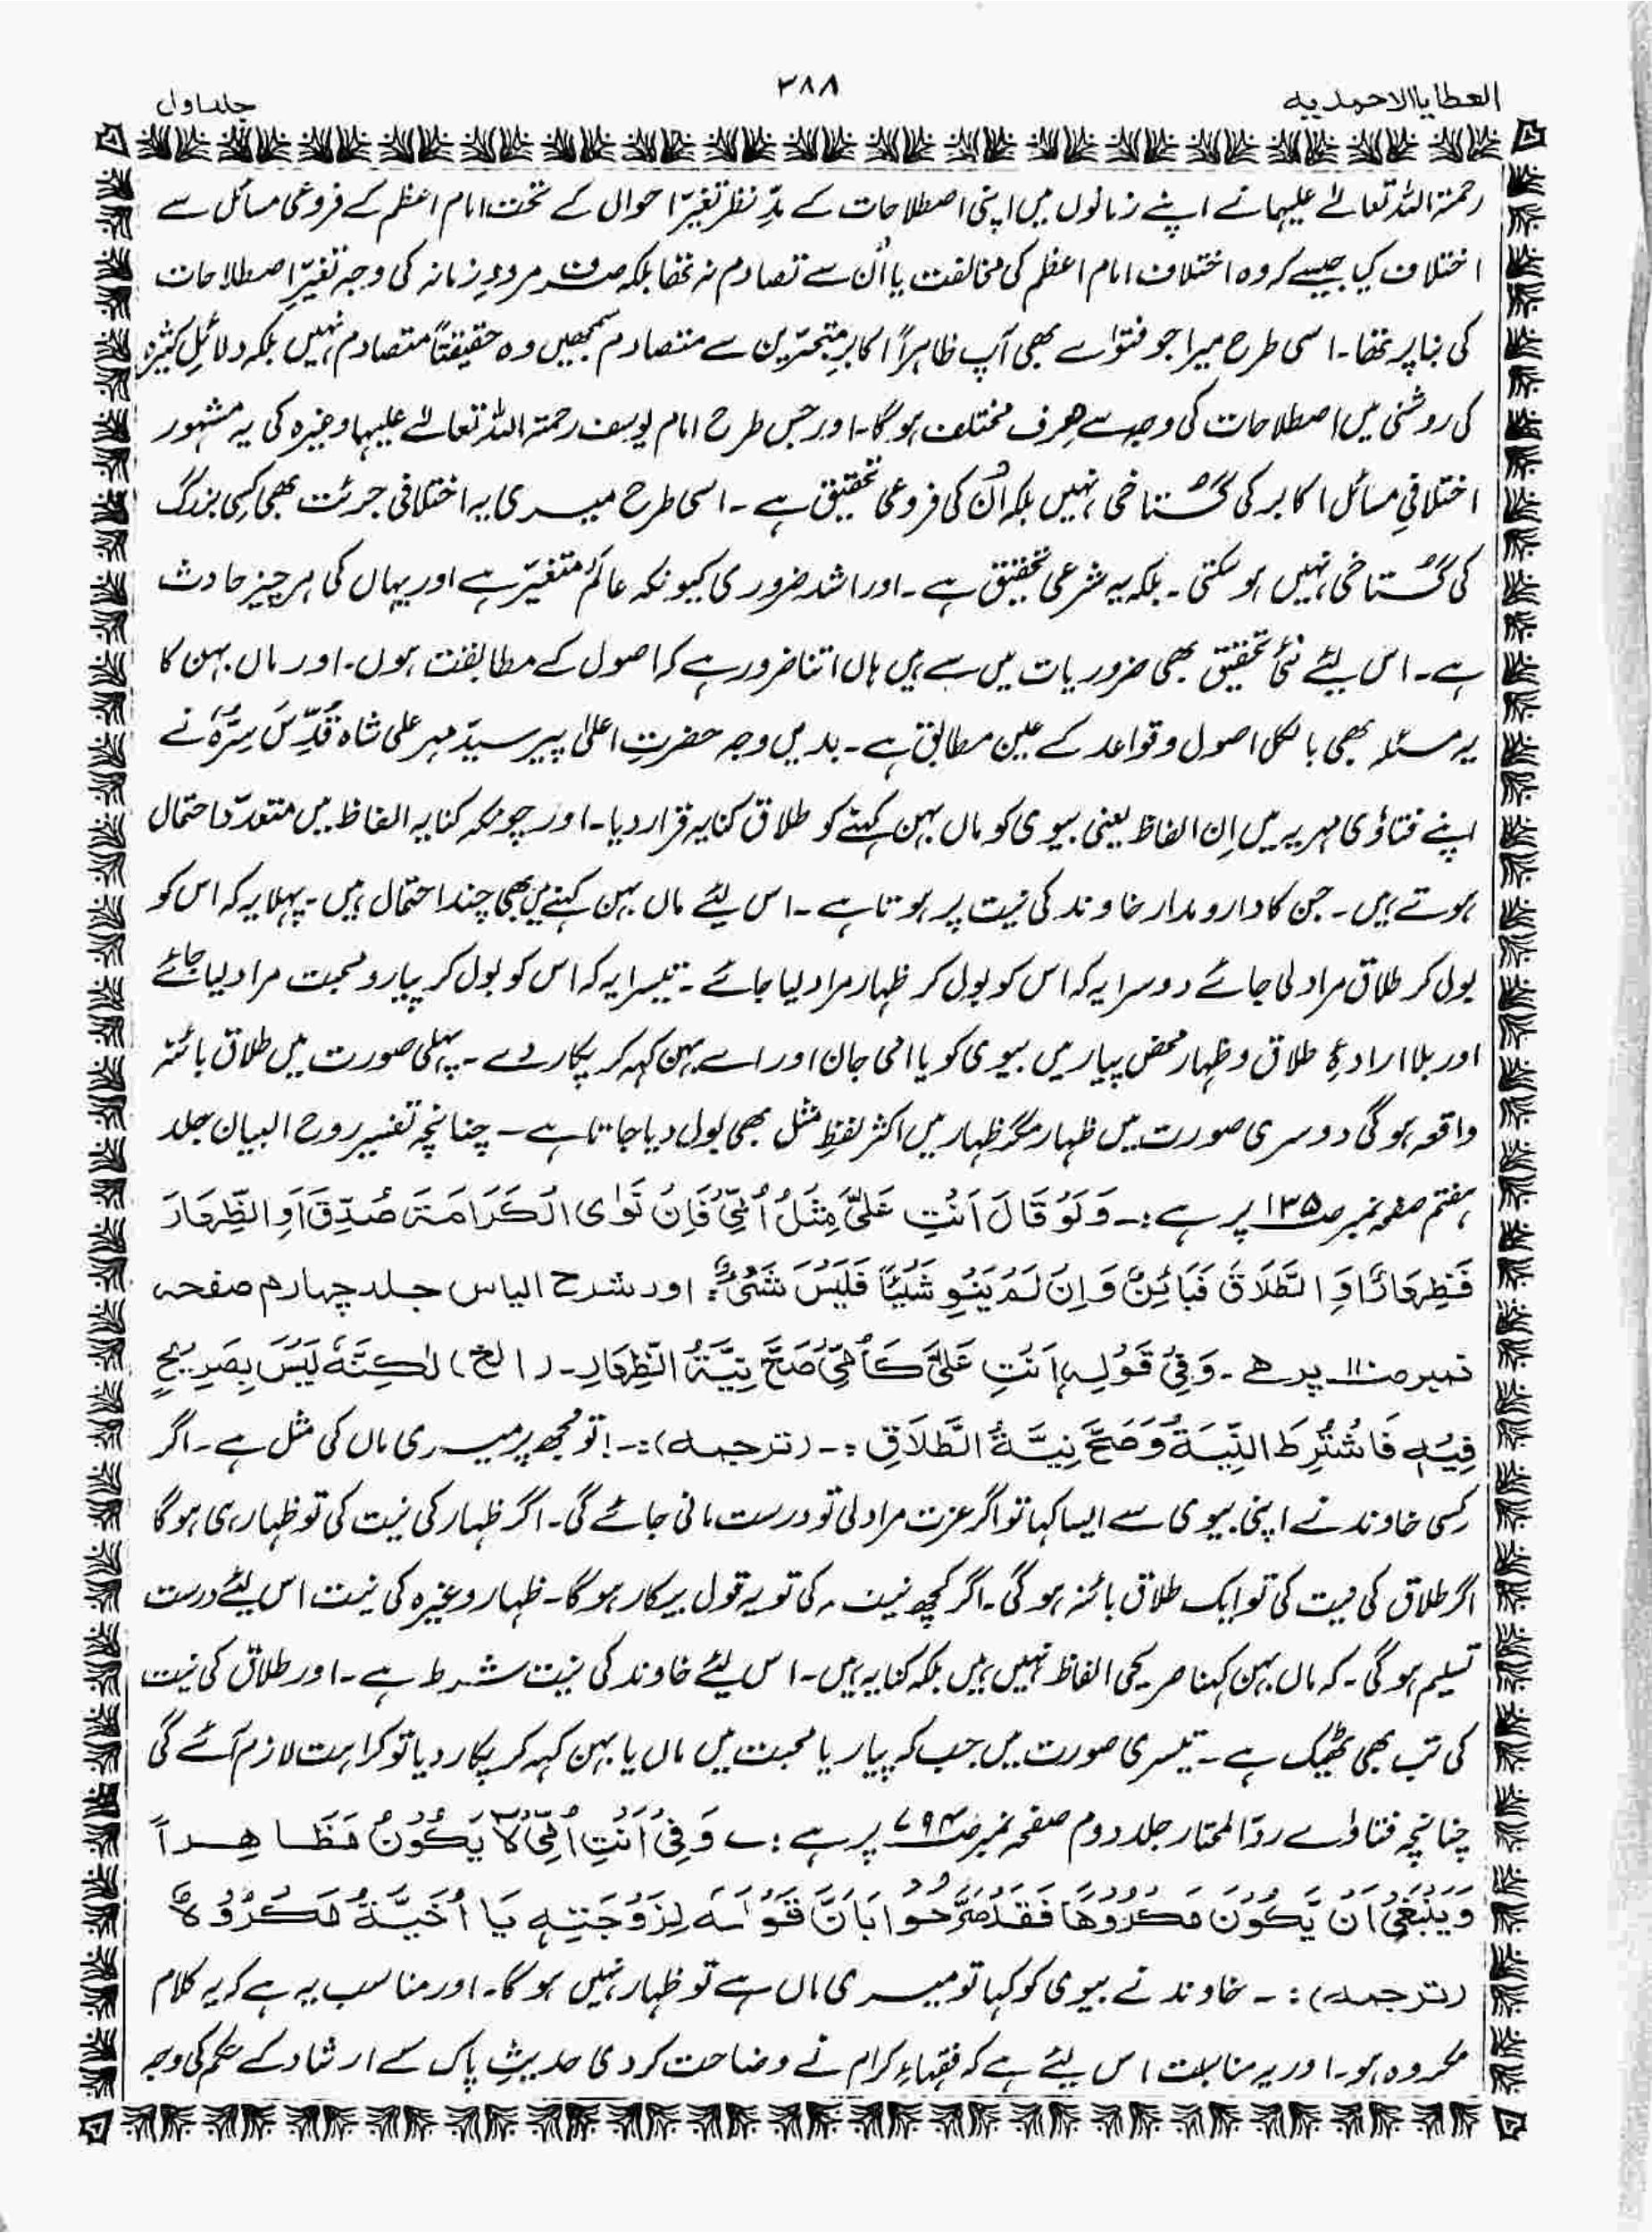 العطایا الاحمدیہ
۳۸۸
جلد اول
رحمۃ اللہ تعالےٰ علیہما نے اپنے زمانوں میں اپنی اصطلاحات کے مدِّ نظر تغیّرِ احوال کے تحت امام اعظم کے فروعی مسائل سے
اختلاف کیا جیسے کہ وہ اختلاف امام اعظم کی مخالفت یا اُن سے تصادم نہ تھا بلکہ صرف مرورِ زمانہ کی وجہ تغیّرِ اصطلاحات
کی بنا پر تھا۔ اسی طرح میرا جو فتوٰے بھی آپ ظاہراً اکابرِ متبحرّین سے متصادم سمجھیں وہ حقیقتاً متصادم نہیں بلکہ دلائلِ کثیرہ
کی روشنی میں اصطلاحات کی وجہ سے صِرف مختلف ہوگا۔ اور جس طرح امام یوسف رحمۃ اللہ تعالےٰ علیہا وغیرہ کی یہ مشہور
اختلافیِ مسائل اکابر کی گُستاخی نہیں بلکہ اُن کی فروعی تحقیق ہے۔ اسی طرح میری یہ اختلافی جرئت بھی کسی بزرگ
کی گُستاخی نہیں ہو سکتی۔ بلکہ یہ شرعی تحقیق ہے۔ اور اشد ضروری کیونکہ عالَم متغیّر ہے اور یہاں کی ہر چیز حادث
ہے۔ اس لیئے نئی تحقیق بھی ضروریات میں سے ہیں ہاں اتنا ضرور ہے کہ اصول کے مطابقت ہوں۔ اور ماں بہن کا
یہ مسئلہ بھی بالکل اصول وقواعد کے عین مطابق ہے۔ بدیں وجہ حضرتِ اعلیٰ پیر سیدّ مہر علی شاہ قُدِّسَ سِرُّہٗ نے
اپنے فتاوٰی مہریہ میں اِن الفاظ یعنی بیوی کو ماں بہن کہنے کو طلاق کنایہ قرار دیا۔ اور چونکہ کنایہ الفاظ میں متعددّ احتمال
ہوتے ہیں۔ جن کا دارومدار خاوند کی نیت پر ہوتا ہے۔ اس لیئے ماں بہن کہنے میں بھی چند احتمال ہیں۔ پہلا یہ کہ اس کو
بول کر طلاق مراد لی جائے دوسرا یہ کہ اس کو بول کر ظہار مراد لیا جائے۔ تیسرا یہ کہ اس کو بول کر پیار و محبت مراد لیا جائے
اور بلا ارادۂِ طلاق وظہار محض پیار میں بیوی کو یا امی جان اور اے بہن کہہ کر پکار دے۔ پہلی صورت میں طلاق بائنہ
واقعہ ہوگی دوسری صورت میں ظہار مگر ظہار میں اکثر لفظِ مثل بھی بول دیا جاتا ہے۔ چنانچہ تفسیر روح البیان جلد
ہفتم صفحہ نمبر صـ۱۳۵ پر ہے:۔ وَلَوْ قَالَ اَنْتِ عَلَیَّ مِثْلُ اُمِّیْ فَاِنْ نَوٰی الْکَرَامَۃَ صُدِّقَ اَوِ الظِّھَارَ
فَظِھَارٌ اَوِ الطَّلَاقَ فَبَائِنٌ وَاِنْ لَمْ یَنْوِ شَیْئًا فَلَیْسَ شَیْءٌ: اور شرح الیاس جلد چہارم صفحہ
نمبر صـ۱۱ پر ھے۔ وَفِیْ قَوْلِہٖ اَنْتِ عَلَیَّ کَاُمِّیْ صَحَّ نِیَّۃُ الظِّھَارِ۔ (الخ) لٰکِنَّہٗ لَیْسَ بِصَرِیْحٍ
فِیْہِ فَاشْتُرِطَ النِّیَۃُ وَصَحَّ نِیَّۃُ الطَّلَاقِ:۔ (ترجمہ):۔! تو مجھ پر میری ماں کی مثل ہے۔ اگر
کسی خاوند نے اپنی بیوی سے ایسا کہا تو اگر عزت مراد لی تو درست مانی جائے گی۔ اگر ظہار کی نیت کی تو ظہار ہی ہوگا
اگر طلاق کی نیت کی تو ایک طلاق بائنہ ہوگی۔ اگر کچھ نیت نہ کی تو یہ قول بیکار ہوگا۔ ظہار وغیرہ کی نیت اس لیئے درست
تسلیم ہوگی۔ کہ ماں بہن کہنا صریحی الفاظ نہیں ہیں بلکہ کنایہ ہیں۔ اس لیئے خاوند کی نیت شرط ہے۔ اور طلاق کی نیت
کی تب بھی ٹھیک ہے۔ تیسری صورت میں جب کہ پیار یا محبت میں ماں یا بہن کہہ کر پکار دیا تو کراہت لازم آئے گی
چنانچہ فتاوٰے ردّ المحتار جلد دوم صفحہ نمبر صـ۷۹۴ پر ہے:۔ وَفِیْ اَنْتِ اُمِّیْ لَا یَکُوْنُ مُظَاھِراً
وَیَنْبَغِیْ اَنْ یَّکُوْنَ مَکْرُوْھًا فَقَدْ صَرَّحُوْا بِاَنَّ قَوْلَہٗ لِزَوْجَتِہٖ یَا اُخَیَّۃُ مَکْرُوْہٌ
(ترجمہ):۔ خاوند نے بیوی کو کہا تو میری ماں ہے تو ظہار نہیں ہوگا۔ اور مناسب یہ ہے کہ یہ کلام
مکروہ ہو۔ اور یہ مناسبت اس لیئے ہے کہ فقہاءِ کرام نے وضاحت کر دی حدیثِ پاک کے ارشاد کے حکم کی وجہ